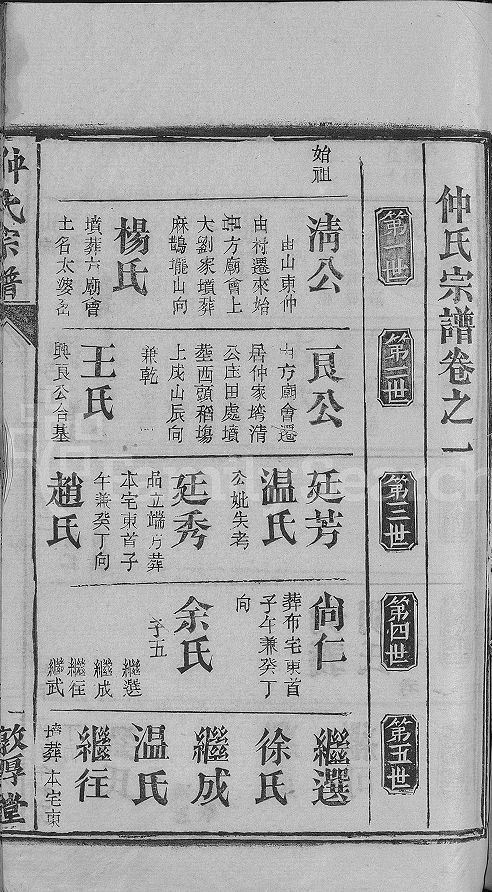 仲氏宗譜卷之一
第一世
第二世
第三世
第四世
第五世
始祖
清公
由山東仲
由村遷來始
方廟會上
大劉家墳葬
麻鵲壠山向
楊氏
墳葬六廟會
土名太婆
良公
方廟會遷
居仲家塆清
公庄田處墳
塟西頭稻塲
上戌山辰向
兼乾
王氏
興良公合墓
廷芳
溫氏
公妣失考
廷秀
品立端方葬
本宅東首子
午兼癸丁向
趙氏
尙仁
葬布宅東首
子午兼癸丁
向
余氏
子五
繼選
繼成
繼往
繼武
繼選
徐氏
繼成
溫氏
繼往
墳葬本宅東
仲氏宗譜
敦厚堂